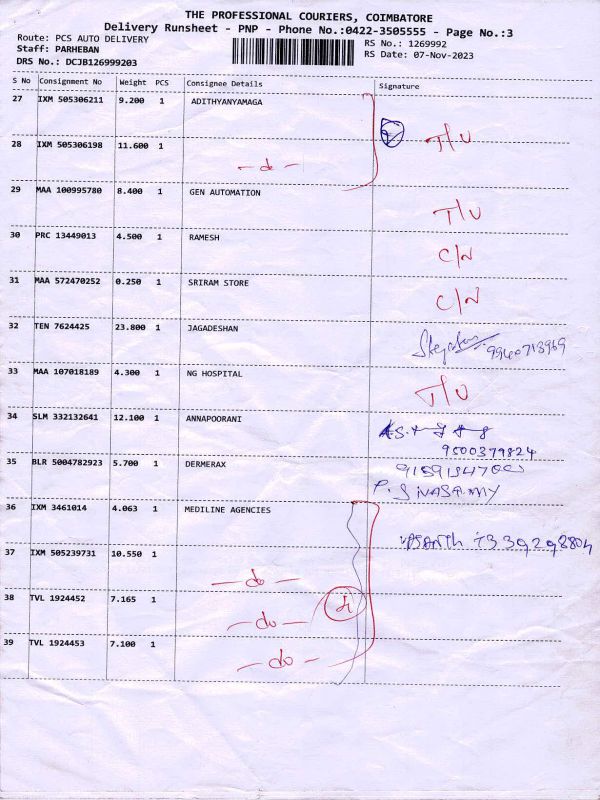 THE PROFESSIONAL COURIERS, COIMBATORE
Delivery Runsheet - PNP - Phone No.:0422-3505555 - Page No.:3
Route: PCS AUTO DELIVERY
RS No.: 1269992
Staff: PARHEBAN
RS Date: 07-Nov-2023
DRS No.: DCJB126999203
S No Consignment No Weight PCS Consignee Details Signature
27 IXM 505306211 9.200 1 ADITHYANYAMAGA
T/U
28 IXM 505306198 11.600 1
-do-
29 MAA 100995780 8.400 1 GEN AUTOMATION
T/U
30 PRC 13449013 4.500 1 RAMESH
C/N
31 MAA 572470252 0.250 1 SRIRAM STORE
C/N
32 TEN 7624425 23.800 1 JAGADESHAN
9940713969
33 MAA 107018189 4.300 1 NG HOSPITAL
T/U
34 SLM 332132641 12.100 1 ANNAPOORANI
9500379824
35 BLR 5004782923 5.700 1 DERMERAX
36 IXM 3461014 4.063 1 MEDILINE AGENCIES
37 IXM 505239731 10.550 1
-do-
38 TVL 1924452 7.165 1
-do-
39 TVL 1924453 7.100 1
-do-